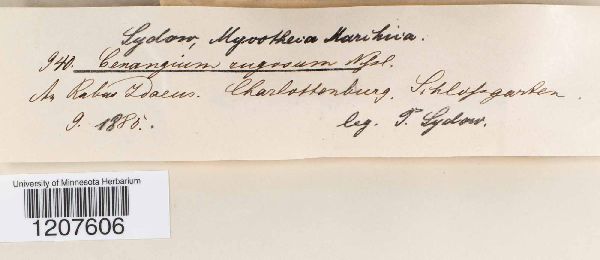 Sydow, Mycotheca Marchica.
940. Cenangium rugosum Niessl.
An Rubus Idaeus. Charlottenburg, Schlossgarten.
9. 1885. leg. P. Sydow.
University of Minnesota Herbarium
1207606